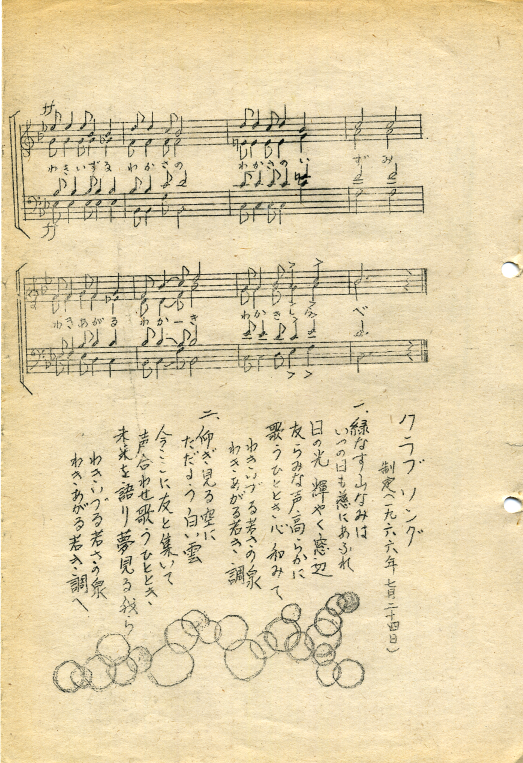 ff
わきいずる わかさの わかさのい ずみ
ff
わきあがる わかーき わかきしら べ
クラブソング
制定(一九六六年七月二十四日)
一、緑なす山なみは
いつの日も慈にあふれ
日の光 輝やく窓辺
友らみな声高らかに
歌うひととき心和みて
わきいづる若さの泉
わきあがる若き調
二、仰ぎ見る空に
ただよう白い雲
今ここに友と集いて
声合わせ歌うひととき
未来を語り夢見る我ら
わきいづる若さの泉
わきあがる若き調べ